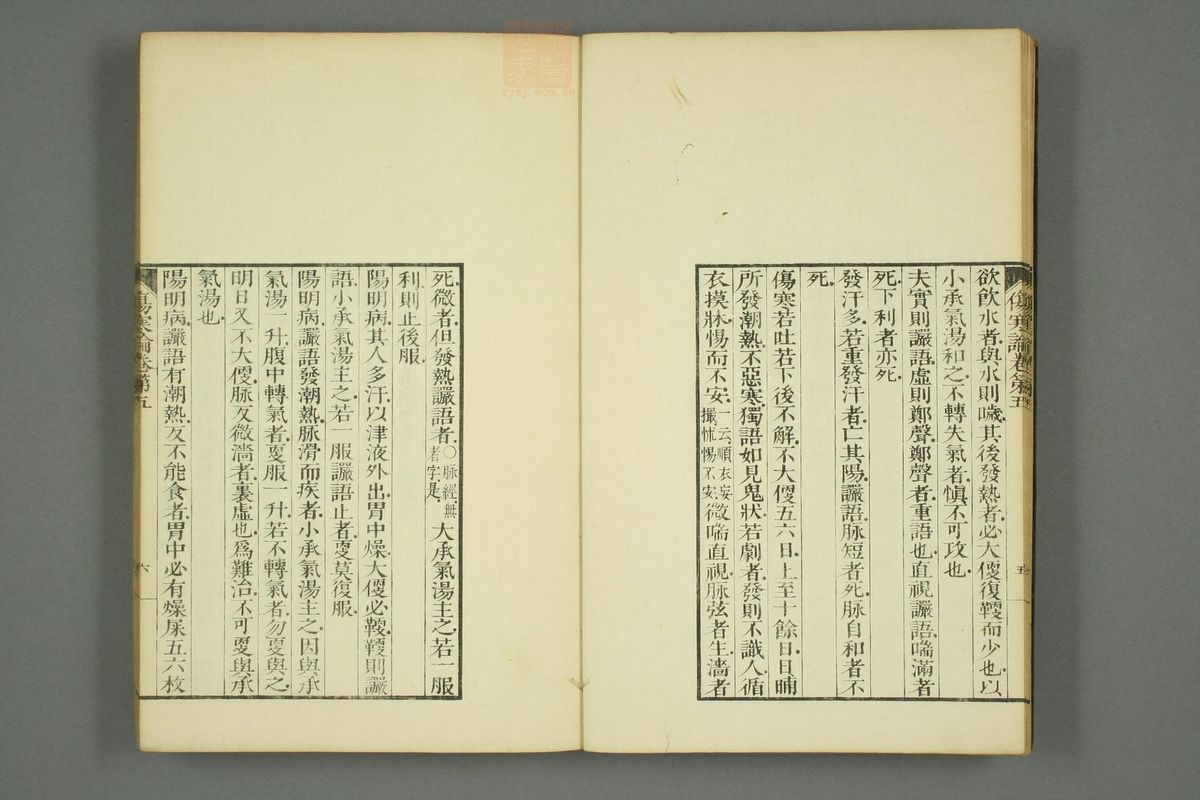 欲飲水者與水則噦其後發熱者必大便復鞕而少也以
小承氣湯和之不轉失氣者慎不可攻也
夫實則讝語虛則鄭聲鄭聲者重語也直視讝語喘滿者
死下利者亦死
發汗多若重發汗者亡其陽讝語脈短者死脈自和者不
死
傷寒若吐若下後不解不大便五六日上至十餘日日晡
所發潮熱不惡寒獨語如見鬼狀若劇者發則不識人循
衣摸牀惕而不安一云順衣妄撮怵惕不安微喘直視脈弦者生濇者
傷寒論卷第五
五
死微者但發熱讝語者○脈經無者字是大承氣湯主之若一服
利則止後服
陽明病其人多汗以津液外出胃中燥大便必鞕鞕則讝
語小承氣湯主之若一服讝語止者更莫復服
陽明病讝語發潮熱脈滑而疾者小承氣湯主之因與承
氣湯一升腹中轉氣者更服一升若不轉氣者勿更與之
明日又不大便脈反微濇者裏虛也爲難治不可更與承
氣湯也
陽明病讝語有潮熱反不能食者胃中必有燥屎五六枚
傷寒論卷第五
六
zysj.com.cn